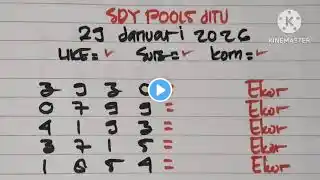 SDY POOLS DITU
29 Januari 2026
LIKE = ✓ SUB = ✓ KOM = ✓
KINEMASTER
3 9 3 Ekor
0 7 9 9 = Ekor
4 1 9 3 = Ekor
3 7 1 5 = Ekor
1 0 5 4 = Ekor